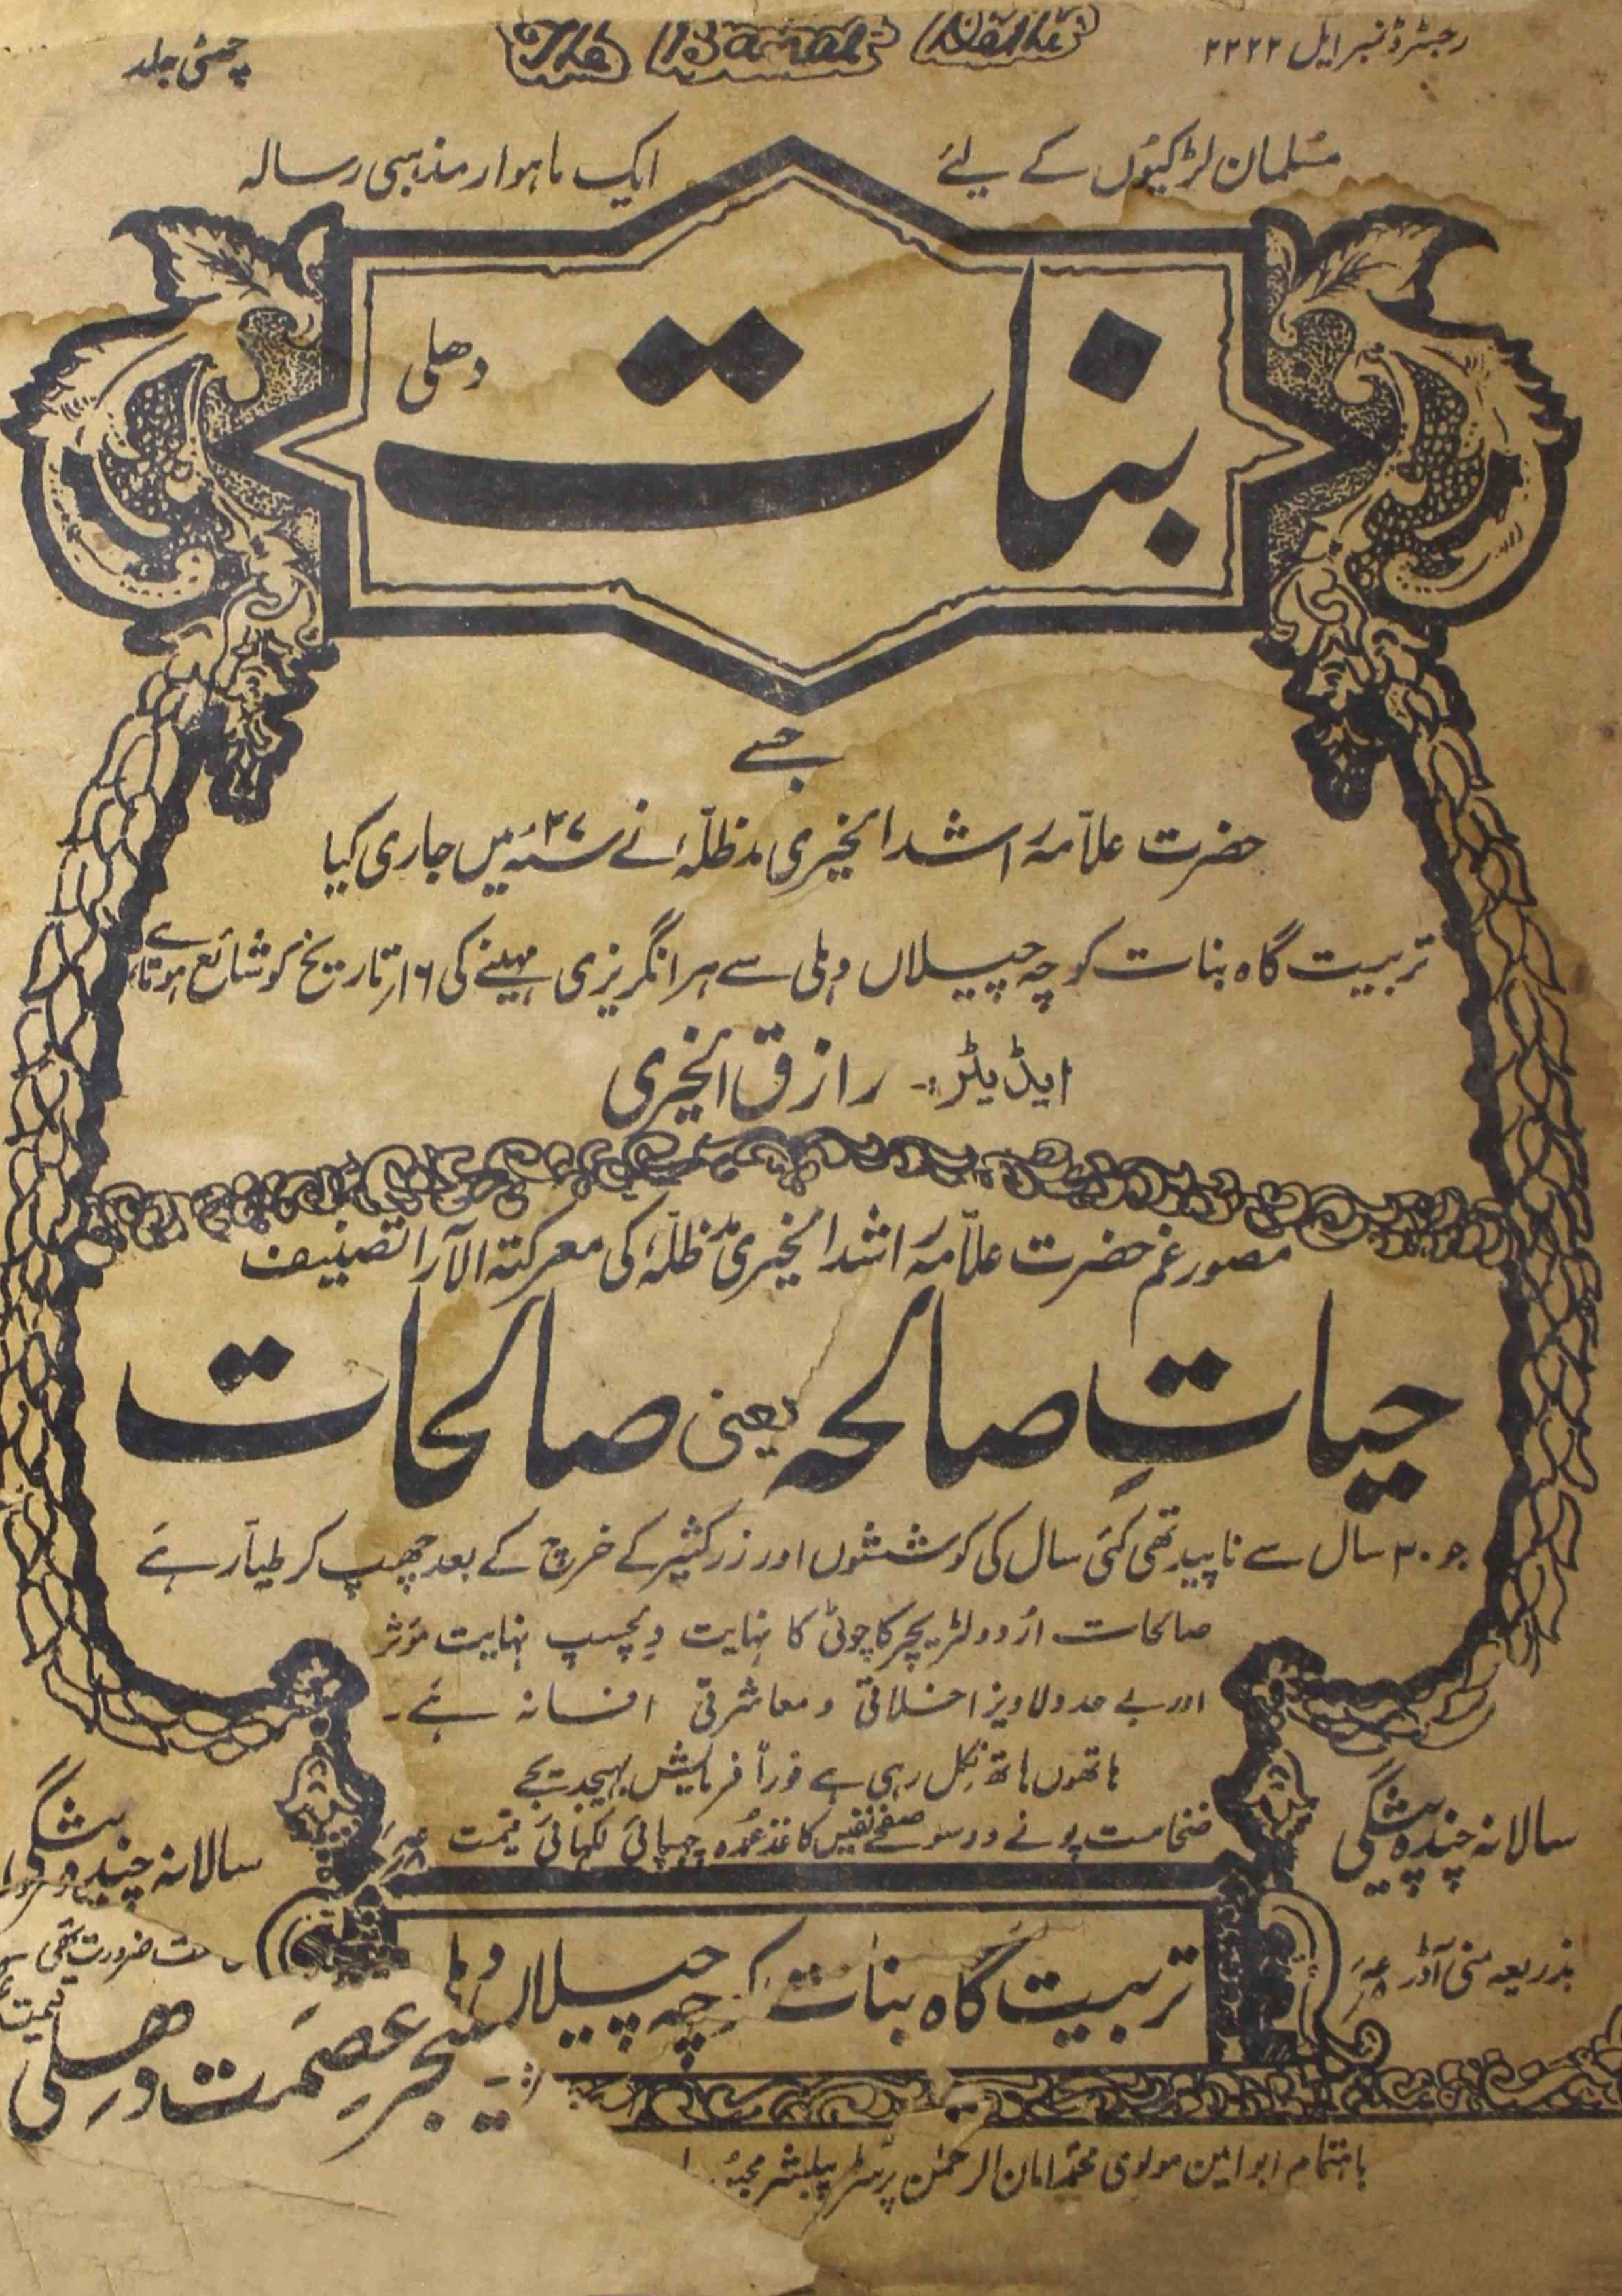 رجسٹرڈ نمبر ایل ۲۲۲۲
The Banat Delhi
چھٹی جلد
مسلمان لڑکیوں کے لیئے
ایک ماہوار مذہبی رسالہ
بنات
دھلی
جسے
حضرت علامہ راشد الخیری مدظلہٗ نے ۲۷ سنہ میں جاری کیا
تربیت گاہ بنات کوچہ چیلاں دہلی سے ہر انگریزی مہینے کی ۱۶ تاریخ کو شائع ہوتا ہے
ایڈیٹر:- رازق الخیری
مصور غم حضرت علامہ راشد الخیری مدظلہٗ کی معرکتہ الآرا تصنیف
حیاتِ صالحہ یعنی صالحات
جو ۲۰ سال سے ناپید تھی کئی سال کی کوششوں اور زر کثیر کے خرچ کے بعد چھپ کر طیار ہے
صالحات اردو لٹریچر کا چوٹی کا نہایت دلچسپ نہایت مؤثر
اور بے حد دلاویز اخلاقی و معاشرتی افسانہ ہے۔
ہاتھوں ہاتھ نکل رہی ہے فوراً فرمایش بھیجدیجے
ضخامت پونے دو سو صفحے نفیس کاغذ عمدہ چھپائی لکھائی قیمت
سالانہ چندہ پیشگی
بذریعہ منی آڈر
سالانہ چندہ پیشگی
ضرورت تھی
قیمت
تربیت گاہ بنات کوچہ چیلاں
منیجر عصمت دھلی
باہتمام ابو امین مولوی محمد امان الرحمٰن پرنٹر پبلشر